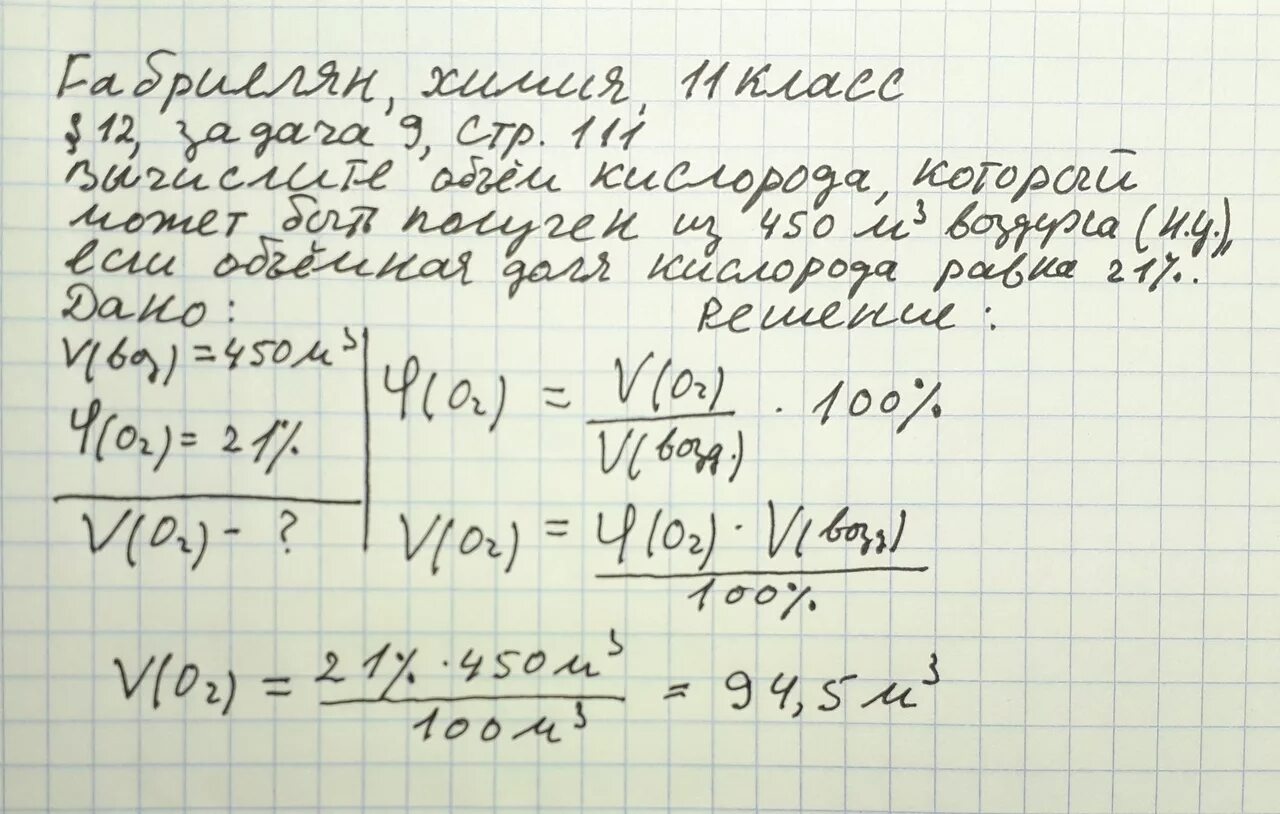 Габриелян, химия, 11 класс
§ 12, задача 9, стр. 111
Вычислите объём кислорода, который
может быть получен из 450 м³ воздуха (н.у.),
если объёмная доля кислорода равна 21%.
Дано:
Решение:
V(воз) = 450 м³
φ(O₂) = 21%
V(O₂) - ?
φ(O₂) = V(O₂) / V(возд.) · 100%
V(O₂) = φ(O₂) · V(возд) / 100%
V(O₂) = 21% · 450 м³ / 100 м³ = 94,5 м³